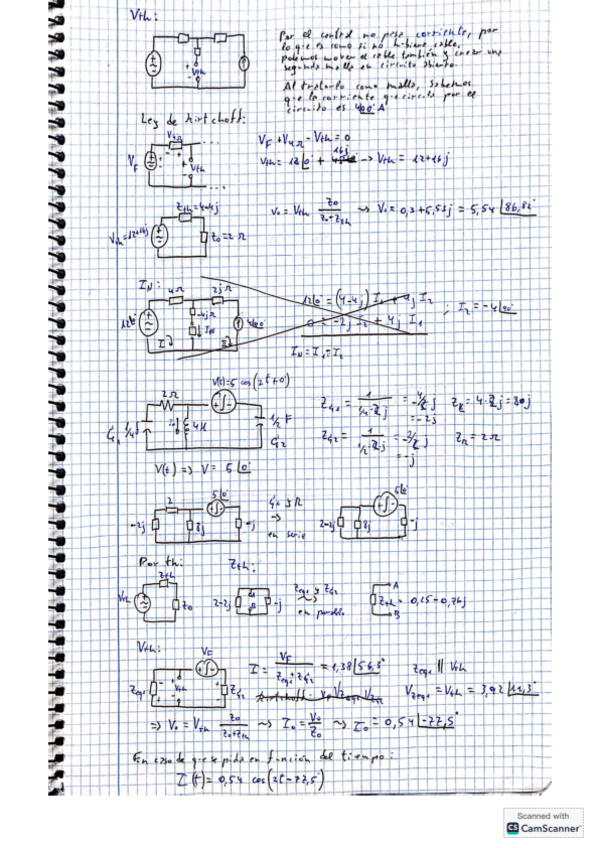 Vth:
Por el central no pasa corriente, por
lo que es como si no hubiera cable.
Podemos mover el cable también y crear una
segunda malla en circuito abierto.
Al tratarlo como malla, sabemos
que la corriente que circula por el
circuito es 4∠90° A
Ley de Kirchoff:
V_F + V_4Ω - Vth = 0
Vth = 12∠0° + 16j → Vth = 12+16j
V_F
Vth
Zth=4-4j
Z0=2Ω
V0 = Vth Z0/(Z0+Zth) → V0 = 0,3+5,53j = 5,54∠86,82°
I_N: 4Ω 2jΩ
-4jΩ
12∠0° = (4-4j) I1 + 4j I2
; I2 = -4∠90°
I_N = I1 - I2
V(t)=5 cos(2t+0)
2Ω
1/4 F
4H
1/2 F
C2
V(t) => V = 5∠0°
2
5∠0°
-2j
8j
-j
en serie
5∠0°
2-2j
8j
-j
Por th:
Zth
Vth
Z0
Zth:
2-2j
-j
Zeq1 y ZC2
en paralelo
A
Zth = 0,15-0,76j
B
Vth:
V_F
Zeq1
Vth
ZC2
I = V_F/(Zeq1+ZC2) = 1,38∠56,3°
Zeq1 || Vth
VZeq1 = Vth = 3,92∠11,3°
=> V0 = Vth Z0/(Z0+Zth) → I0 = V0/Z0 → I0 = 0,54∠-77,5°
En caso de que se pida en función del tiempo:
I(t) = 0,54 cos(2t-77,5°)
Scanned with
CS CamScanner